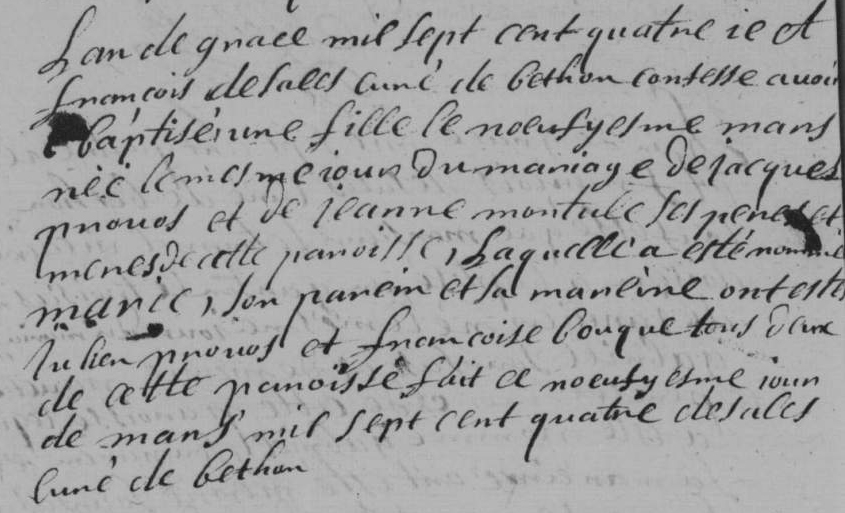 Lan de grace mil sept cent quatre ie
françois desales curé de bethon confesse avoir
baptisé une fille le noeufyesme mars
néé le mesme iour du mariage de jacques
prouos et de jeanne montule ses peres et
meres de cette paroisse, Laquelle a esté nommée
marie, son parein et sa mareine ont estés
Julien prouos et françoise bouque tous deux
de cette paroisse fait ce noeufyesme iour
de mars mil sept cent quatre desales
Curé de bethon